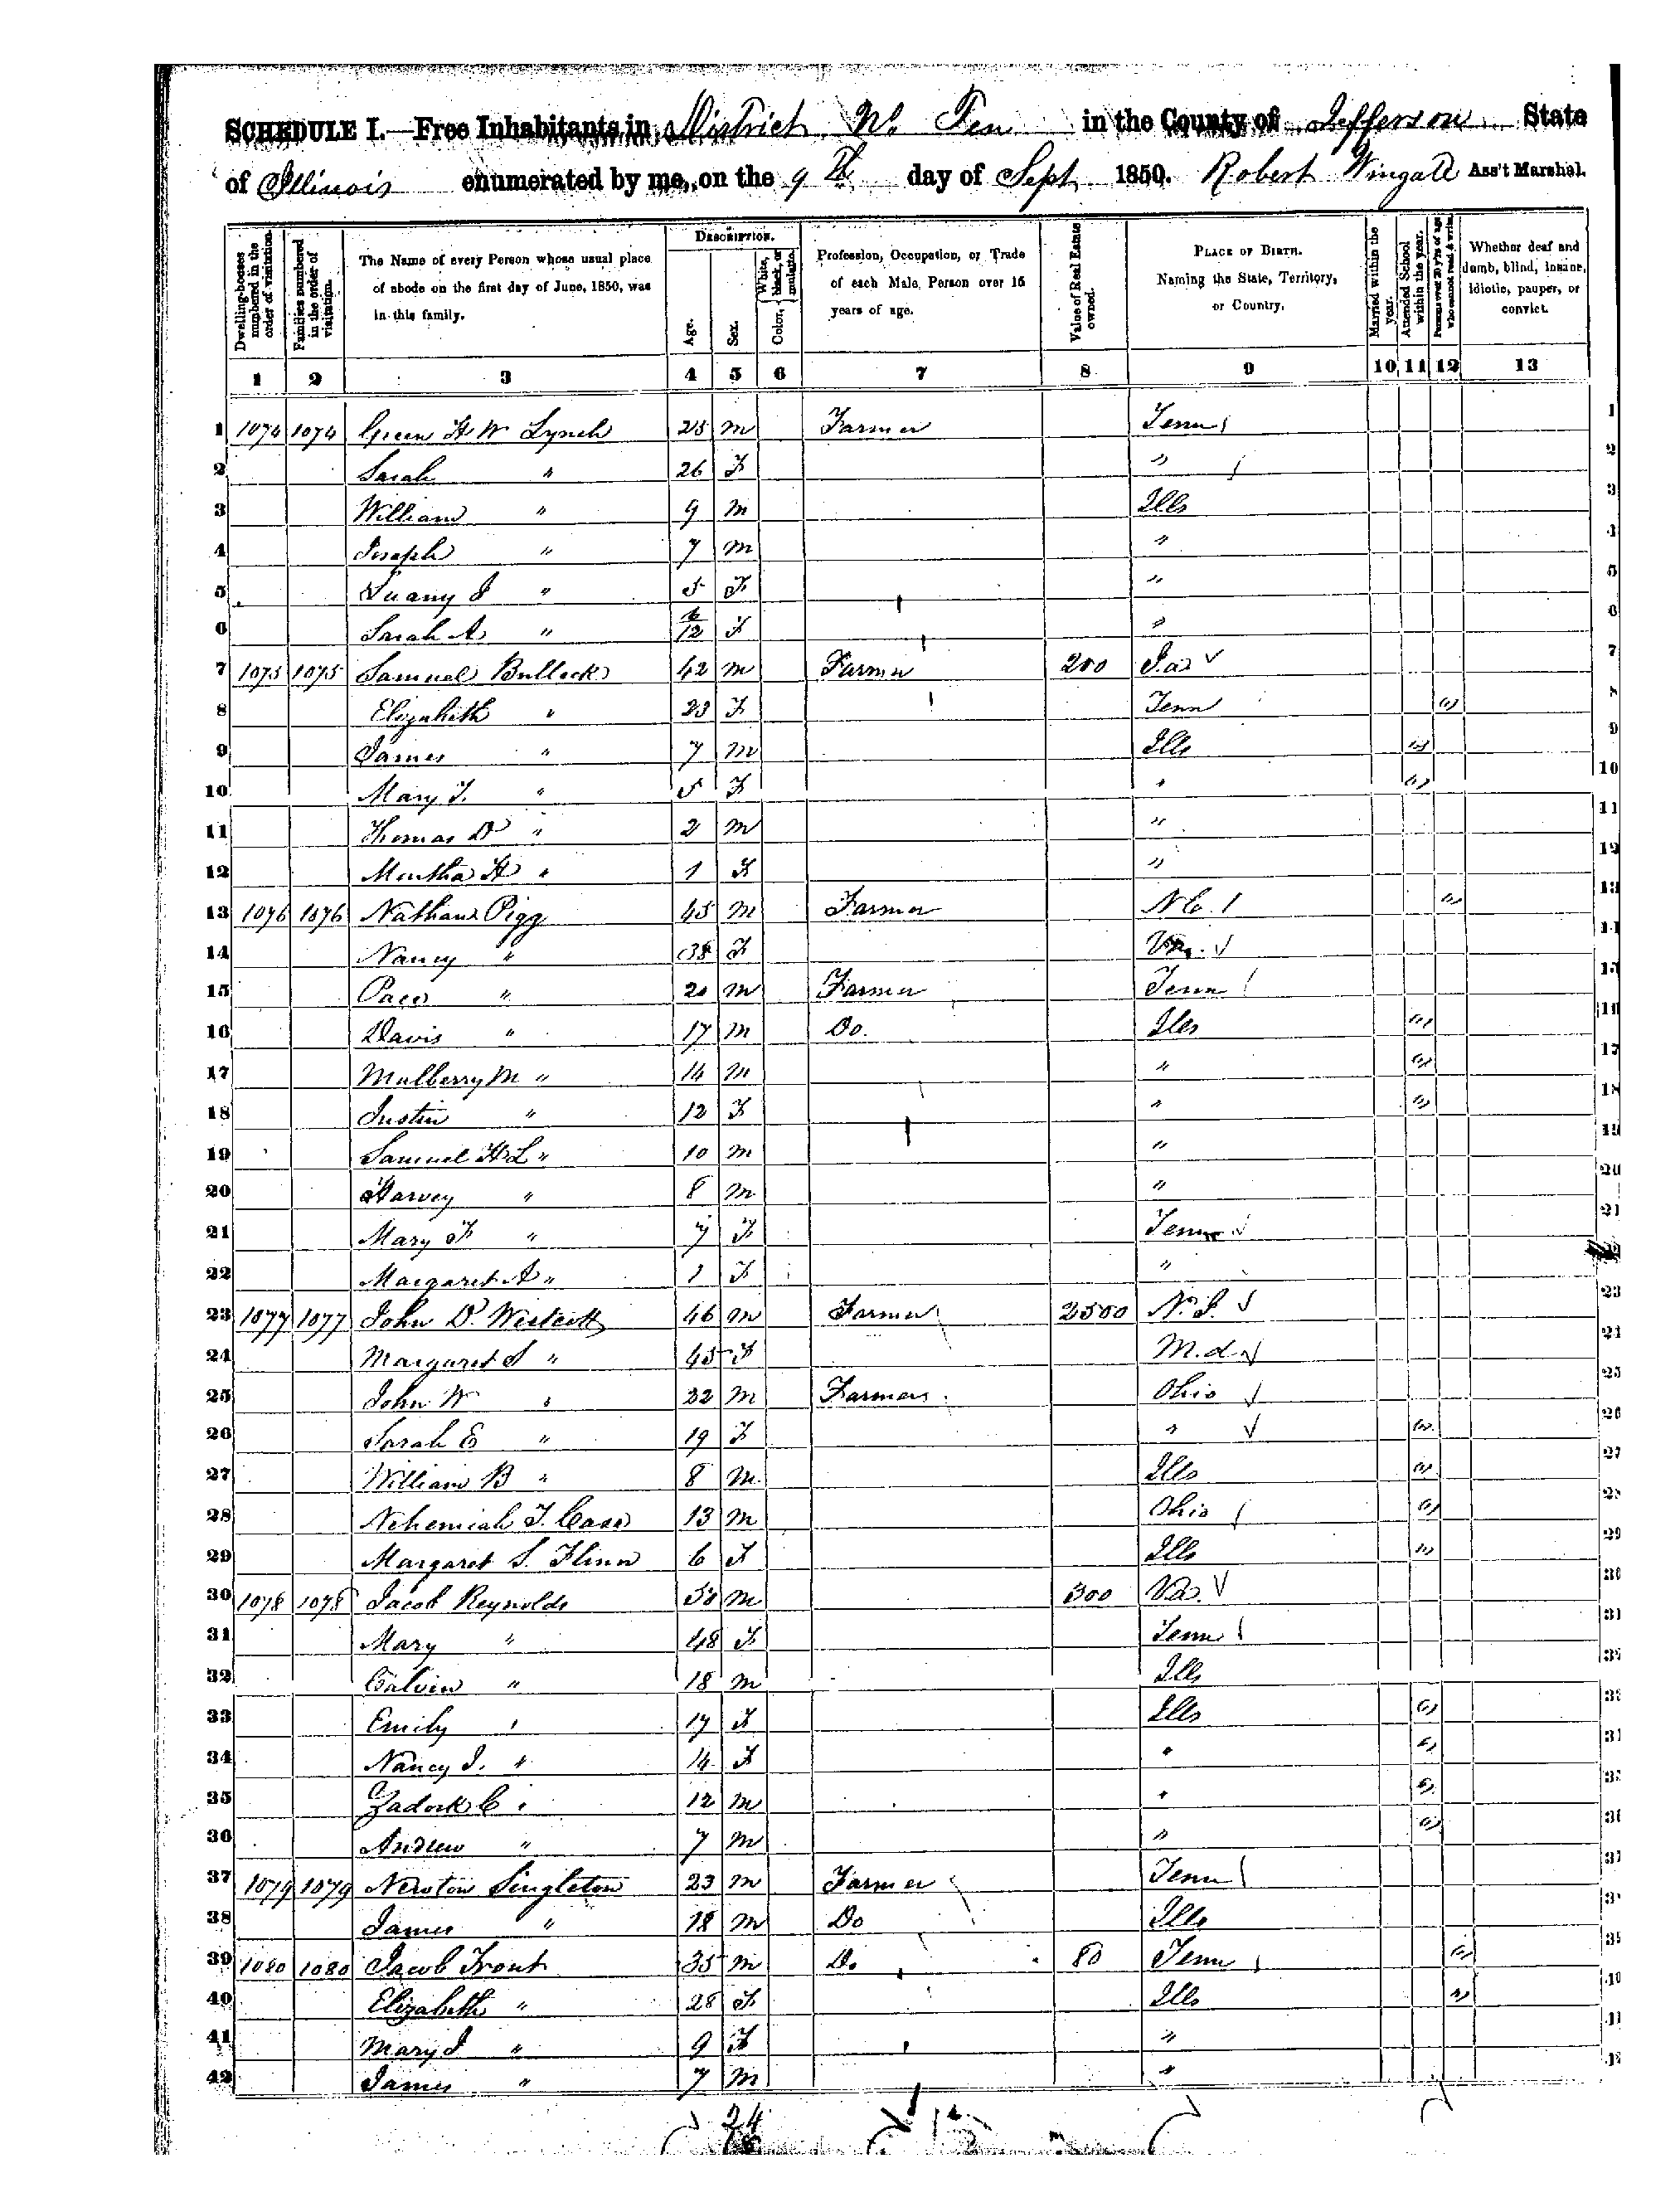 SCHEDULE I.—Free Inhabitants in District No. Ten in the County of Jefferson State
of Illinois enumerated by me, on the 9th day of Sept 1850. Robert Wingate Ass't Marshal.
Dwelling-houses numbered in the order of visitation.
Families numbered in the order of visitation.
The Name of every Person whose usual place of abode on the first day of June, 1850, was in this family.
DESCRIPTION.
Age.
Sex.
Color, White, black, or mulatto.
Profession, Occupation, or Trade of each Male Person over 15 years of age.
Value of Real Estate owned.
PLACE OF BIRTH. Naming the State, Territory, or Country.
Married within the year.
Attended School within the year.
Persons over 20 y'rs of age who cannot read & write.
Whether deaf and dumb, blind, insane, idiotic, pauper, or convict.
1 2 3 4 5 6 7 8 9 10 11 12 13
1 1074 1074 Green H W Lynch 25 m Farmer Tenn 1
2 Sarah " 26 F " 2
3 William " 9 m Ills 3
4 Joseph " 7 m " 4
5 J " 5 F " 5
6 Sarah A " 6/12 F " 6
7 1075 1075 Samuel Bullock 42 m Farmer 200 7
8 Elizabeth " 23 F Tenn " 8
9 James " 7 m Ills " 9
10 Mary T. " 5 F " " 10
11 Thomas D " 2 m " 11
12 Martha H " 1 F " 12
13 1076 1076 Nathan Pigg 45 m Farmer N C. " 13
14 Nancy " 38 F Va. 14
15 " 20 m Farmer Tenn 15
16 Davis " 17 m Do. Ills " 16
17 Mulberry M " 14 m " " 17
18 Justin " 12 F " " 18
19 Samuel H L " 10 m " 19
20 Harvey " 8 m " 20
21 Mary F " 7 F Tenn 21
22 Margaret A " 1 F "
23 1077 1077 John D. Westcott 46 m Farmer 2500 N. J. 23
24 Margaret S " 45 F M.d 24
25 John W " 22 m Farmer Ohio 25
26 Sarah E " 19 F " " 26
27 William B " 8 m Ills " 27
28 Nehemiah T. Case 13 m Ohio " 28
29 Margaret S. Flinn 6 F Ills " 29
30 1078 1078 Jacob Reynolds m 300 Va. 30
31 Mary " 48 F Tenn 31
32 Calvin " 18 m Ills 32
33 Emily " 17 F Ills " 33
34 Nancy J. " 14 F " " 34
35 Zadock C " 12 m " " 35
36 Andrew " 7 m " " 36
37 1079 1079 Newton Singleton 23 m Farmer Tenn 37
38 James " 18 m Do Ills 38
39 1080 1080 Jacob Trout 35 m Do 80 Tenn " 39
40 Elizabeth " 28 F Ills " 40
41 Mary J " 9 F " 41
42 James " 7 m " 42
24